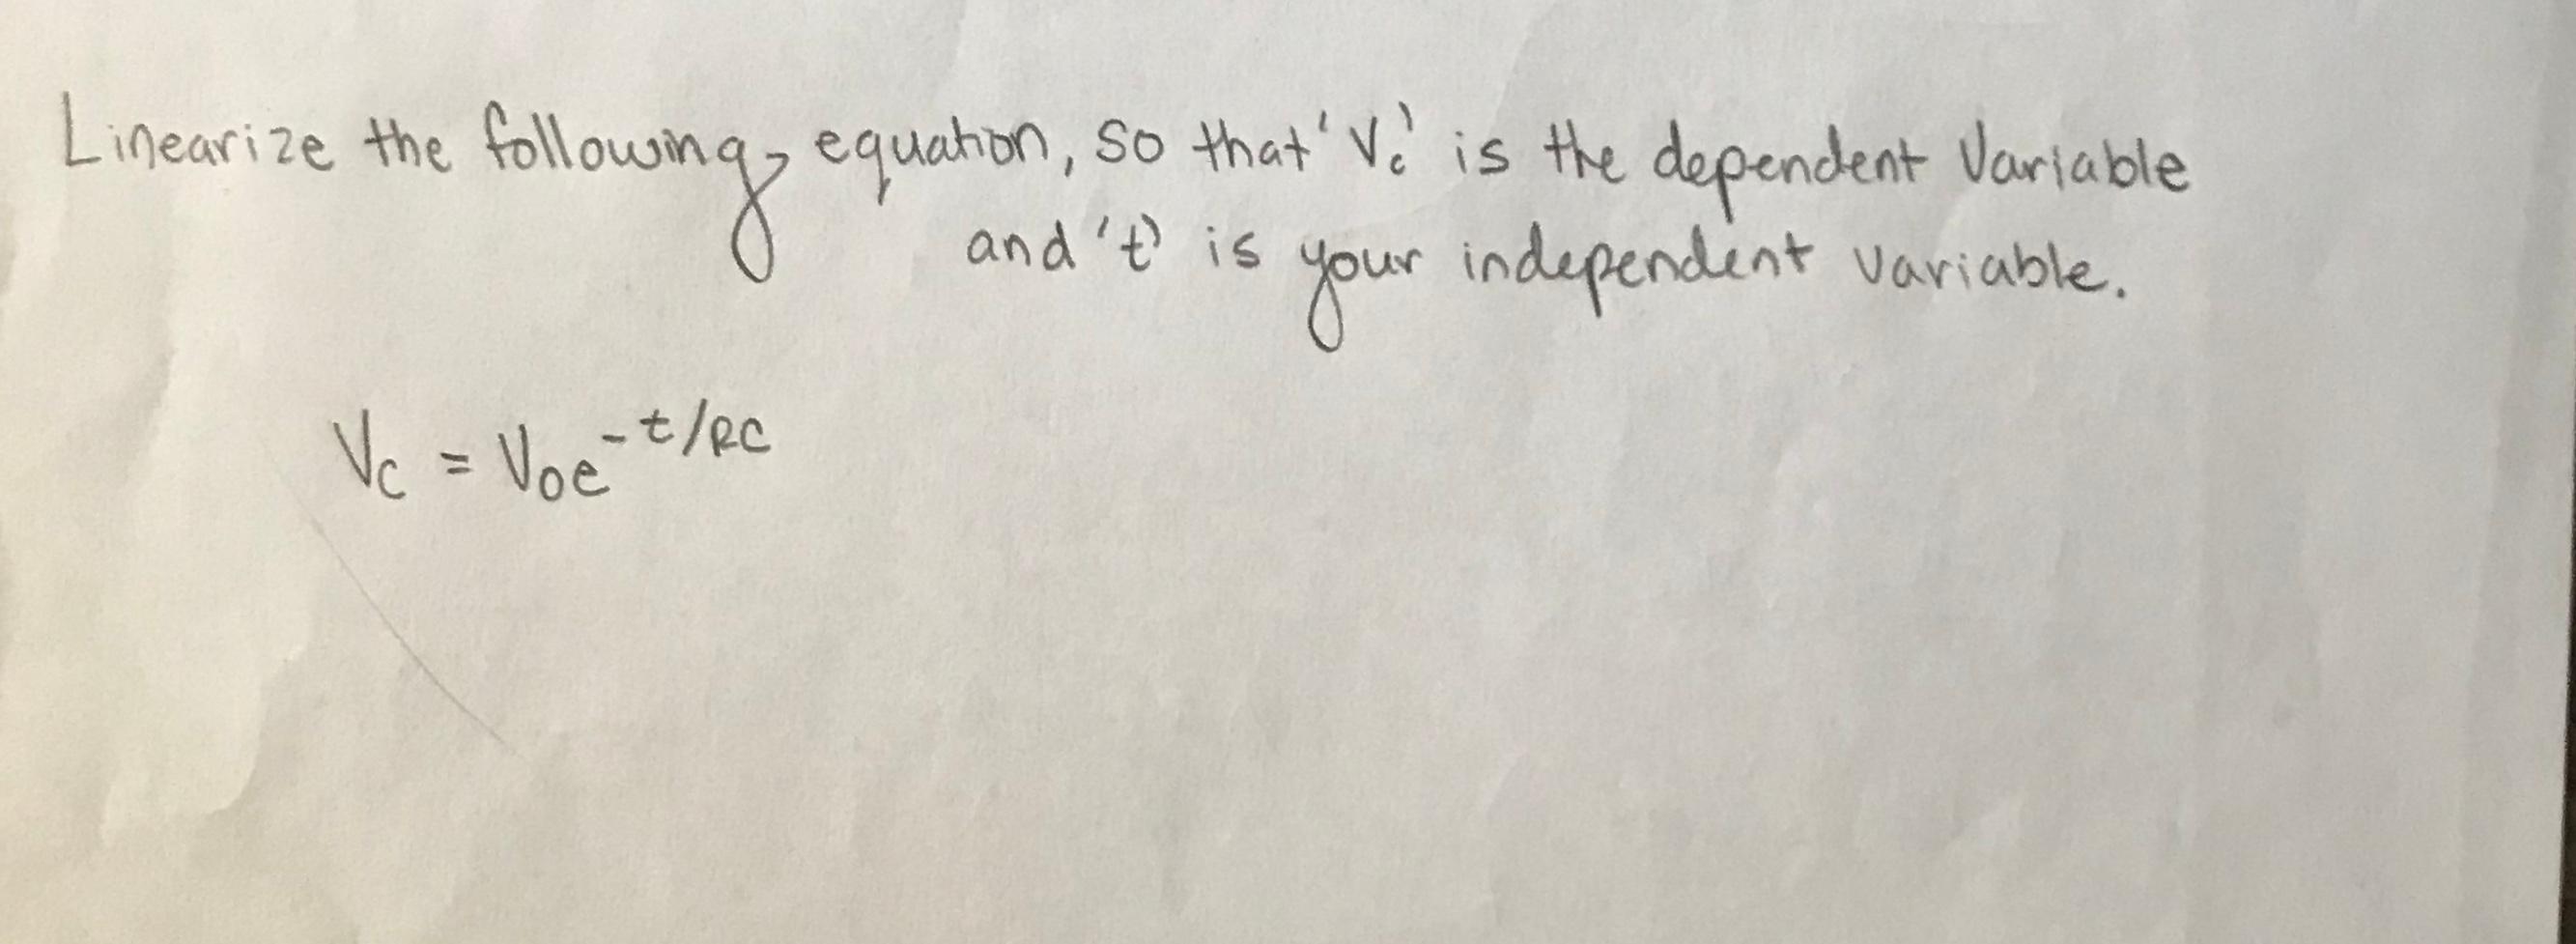 Linearize the following equation, so that 'Vc' is the dependent variable
and 't' is your independent variable.
Vc = V₀e^-t/RC